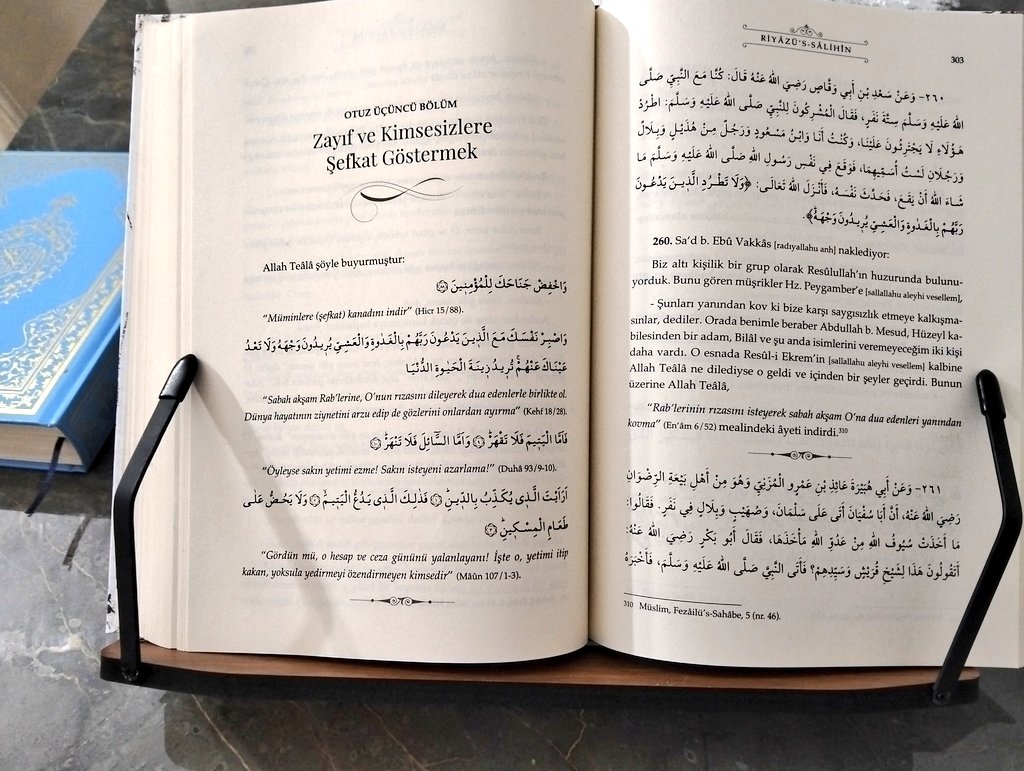 OTUZ ÜÇÜNCÜ BÖLÜM
Zayıf ve Kimsesizlere
Şefkat Göstermek
Allah Teâlâ şöyle buyurmuştur:
وَاخْفِضْ جَنَاحَكَ لِلْمُؤْمِنٖينَ ﴿٨٨﴾
“Müminlere (şefkat) kanadını indir” (Hicr 15/88).
وَاصْبِرْ نَفْسَكَ مَعَ الَّذٖينَ يَدْعُونَ رَبَّهُمْ بِالْغَدٰوةِ وَالْعَشِيِّ يُرٖيدُونَ وَجْهَهُ وَلَا تَعْدُ
عَيْنَاكَ عَنْهُمْ تُرٖيدُ زٖينَةَ الْحَيٰوةِ الدُّنْيَا
“Sabah akşam Rab’lerine, O’nun rızasını dileyerek dua edenlerle birlikte ol.
Dünya hayatının ziynetini arzu edip de gözlerini onlardan ayırma” (Kehf 18/28).
فَاَمَّا الْيَتٖيمَ فَلَا تَقْهَرْ ﴿٩﴾ وَاَمَّا السَّٓائِلَ فَلَا تَنْهَرْ ﴿١٠﴾
“Öyleyse sakın yetimi ezme! Sakın isteyeni azarlama!” (Duhâ 93/9-10).
اَرَاَيْتَ الَّذٖي يُكَذِّبُ بِالدّٖينِ ﴿١﴾ فَذٰلِكَ الَّذٖي يَدُعُّ الْيَتٖيمَ ﴿٢﴾ وَلَا يَحُضُّ عَلٰى
طَعَامِ الْمِسْكٖينِ ﴿٣﴾
“Gördün mü, o hesap ve ceza gününü yalanlayanı! İşte o, yetimi itip
kakan, yoksula yedirmeyi özendirmeyen kimsedir” (Mâûn 107/1-3).
RİYÂZÜ’S-SÂLİHÎN
303
٢٦٠- وَعَنْ سَعْدِ بْنِ أَبِي وَقَّاصٍ رَضِيَ اللهُ عَنْهُ قَالَ: كُنَّا مَعَ النَّبِيِّ صَلَّى
اللهُ عَلَيْهِ وَسَلَّمَ سِتَّةَ نَفَرٍ، فَقَالَ الْمُشْرِكُونَ لِلنَّبِيِّ صَلَّى اللهُ عَلَيْهِ وَسَلَّمَ: اطْرُدْ
هٰؤُلَاءِ لَا يَجْتَرِئُونَ عَلَيْنَا، وَكُنْتُ أَنَا وَابْنُ مَسْعُودٍ وَرَجُلٌ مِنْ هُذَيْلٍ وَبِلَالٌ
وَرَجُلَانِ لَسْتُ أُسَمِّيهِمَا، فَوَقَعَ فِي نَفْسِ رَسُولِ اللهِ صَلَّى اللهُ عَلَيْهِ وَسَلَّمَ مَا
شَاءَ اللهُ أَنْ يَقَعَ، فَحَدَّثَ نَفْسَهُ، فَأَنْزَلَ اللهُ تَعَالَى: ﴿وَلَا تَطْرُدِ الَّذٖينَ يَدْعُونَ
رَبَّهُمْ بِالْغَدٰوةِ وَالْعَشِيِّ يُرٖيدُونَ وَجْهَهُ﴾.
260. Sa’d b. Ebû Vakkâs [radıyallahu anh] naklediyor:
Biz altı kişilik bir grup olarak Resûlullah’ın huzurunda bulunu-
yorduk. Bunu gören müşrikler Hz. Peygamber’e [sallallahu aleyhi vesellem],
- Şunları yanından kov ki bize karşı saygısızlık etmeye kalkışma-
sınlar, dediler. Orada benimle beraber Abdullah b. Mesud, Hüzeyl ka-
bilesinden bir adam, Bilâl ve şu anda isimlerini veremeyeceğim iki kişi
daha vardı. O esnada Resûl-i Ekrem’in [sallallahu aleyhi vesellem] kalbine
Allah Teâlâ ne dilediyse o geldi ve içinden bir şeyler geçirdi. Bunun
üzerine Allah Teâlâ,
“Rab’lerinin rızasını isteyerek sabah akşam O’na dua edenleri yanından
kovma” (En’âm 6/52) mealindeki âyeti indirdi.310
٢٦١- وَعَنْ أَبِي هُبَيْرَةَ عَائِذِ بْنِ عَمْرٍو الْمُزَنِيِّ وَهُوَ مِنْ أَهْلِ بَيْعَةِ الرِّضْوَانِ
رَضِيَ اللهُ عَنْهُ، أَنَّ أَبَا سُفْيَانَ أَتَى عَلَى سَلْمَانَ، وَصُهَيْبٍ وَبِلَالٍ فِي نَفَرٍ. فَقَالُوا:
مَا أَخَذَتْ سُيُوفُ اللهِ مِنْ عَدُوِّ اللهِ مَأْخَذَهَا، فَقَالَ أَبُو بَكْرٍ رَضِيَ اللهُ عَنْهُ:
أَتَقُولُونَ هَذَا لِشَيْخِ قُرَيْشٍ وَسَيِّدِهِمْ؟ فَأَتَى النَّبِيَّ صَلَّى اللهُ عَلَيْهِ وَسَلَّمَ، فَأَخْبَرَهُ
310 Müslim, Fezâilü’s-Sahâbe, 5 (nr. 46).